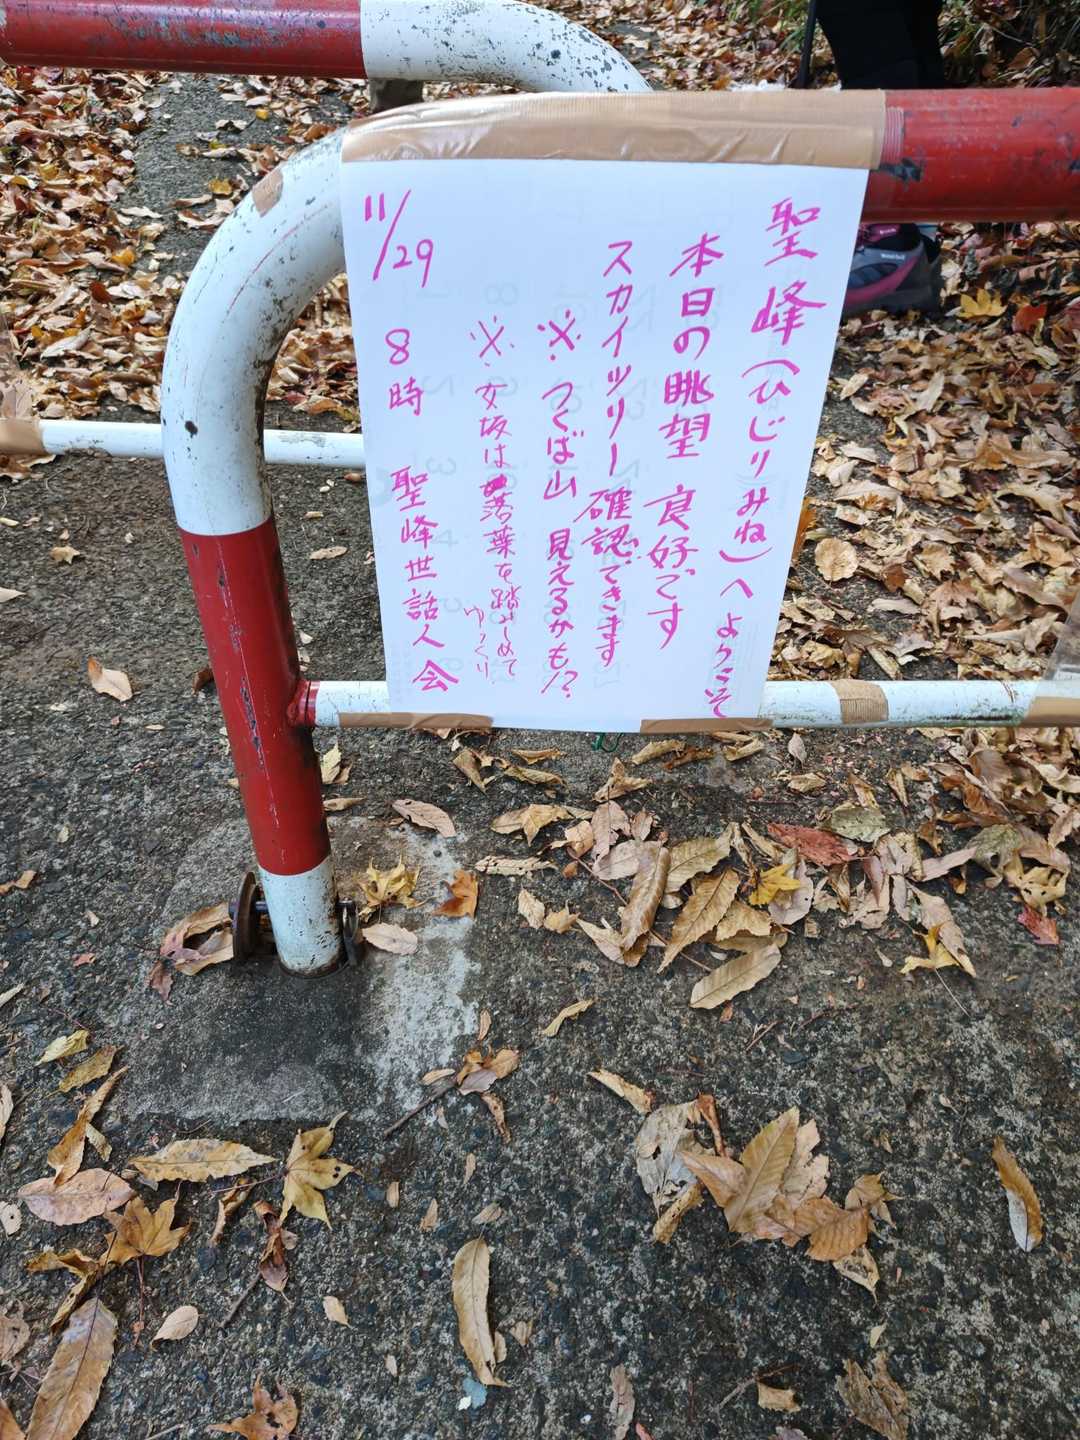 聖峰(ひじりみね)へようこそ
本日の眺望 良好です
スカイツリー 確認できます
※つくば山 見えるかも!?
※女坂は落葉を踏みしめて
ゆっくり
11/29 8時 聖峰世話人会